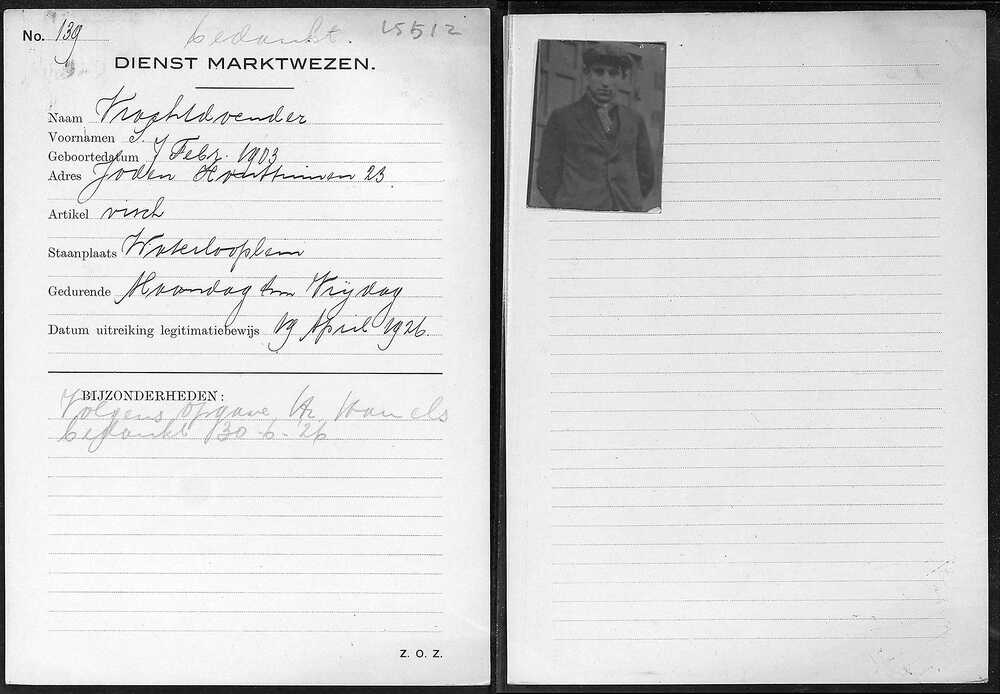 No. 139 bedankt. 15512
DIENST MARKTWEZEN.
Naam Vrachtdoender
Voornamen S.
Geboortedatum 7 Febr. 1903
Adres Joden Houttuinen 23
Artikel visch
Staanplaats Waterlooplein
Gedurende Maandag tm Vrijdag
Datum uitreiking legitimatiebewijs 19 April 1926.
BIJZONDERHEDEN:
Volgens opgave Hr
bedankt 30-6-26
Z. O. Z.